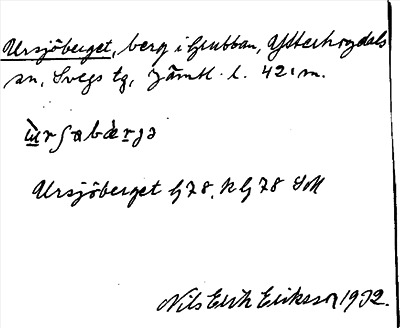 Ursjöberget, berg i Grubban, Ytterhogdals
sn, Svegs tg, Jämtl. l. 421 m.
ɯ̀rʃabæ̀rjə
Ursjöberget G78, K G78 SM
Nils Erik Eriksson 1932.